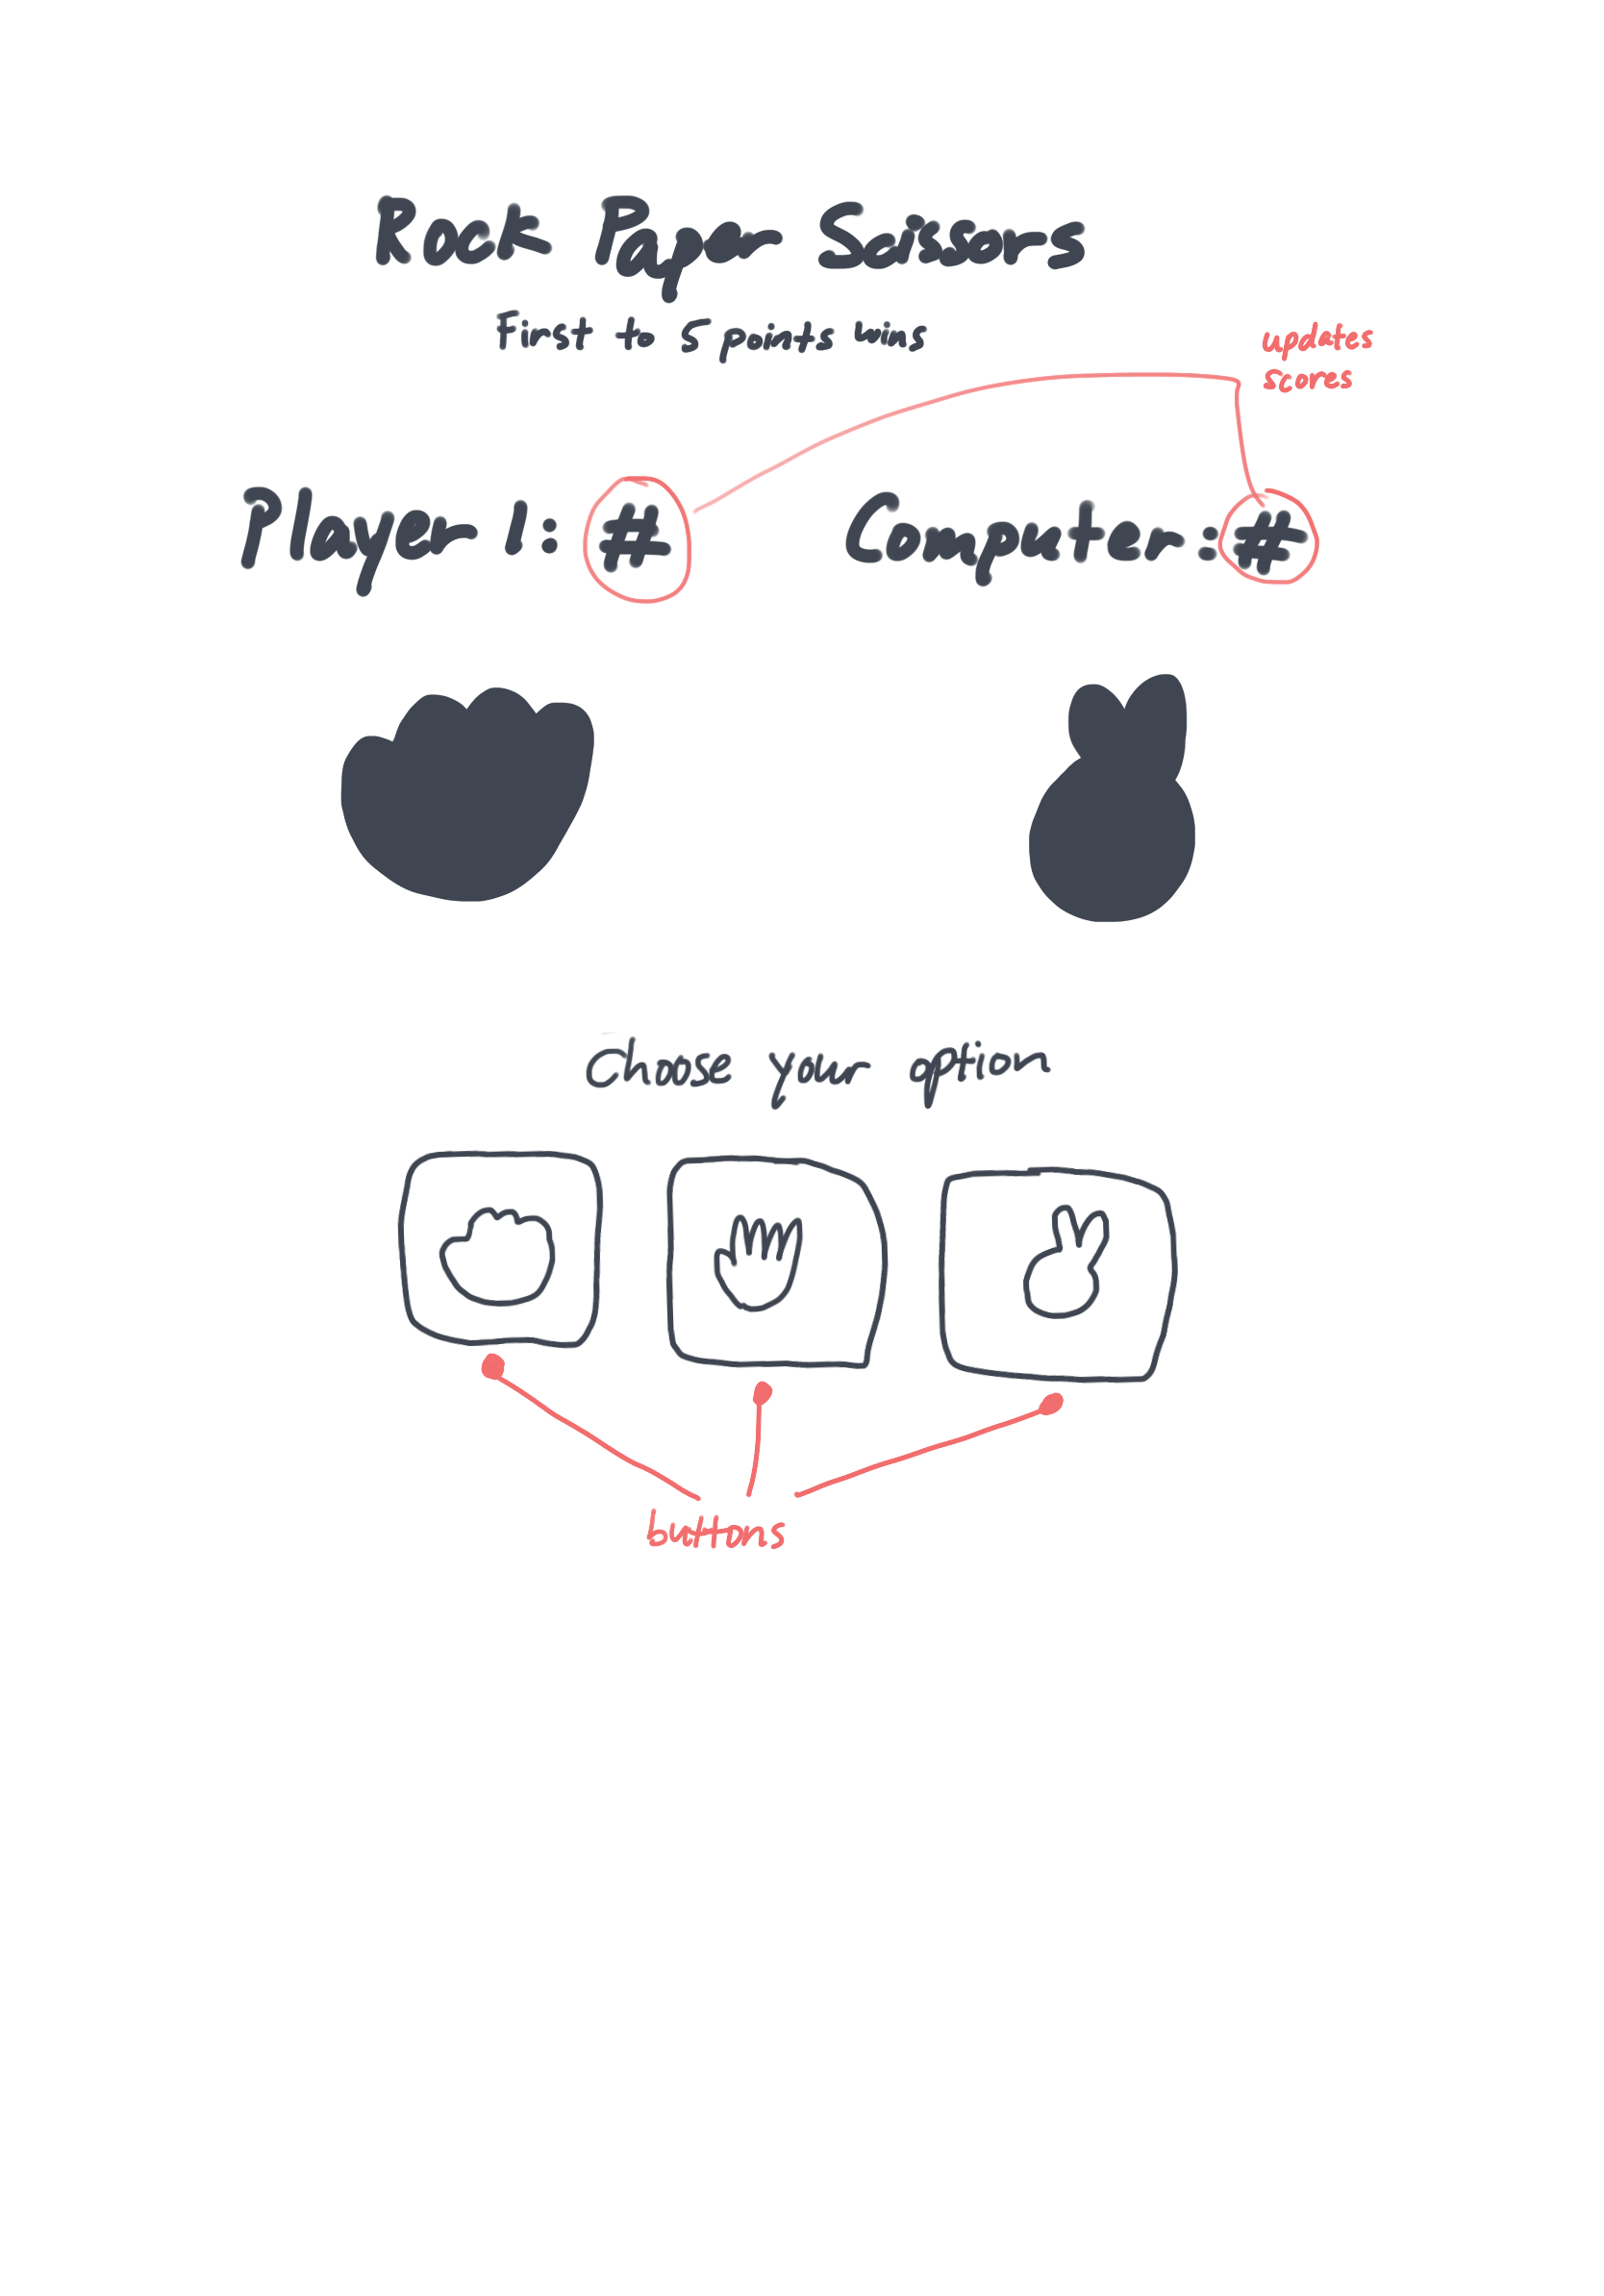 Rock Paper Scissors
First to 5 points wins
updates
scores
Player 1: #
Computer: #
Choose your option
buttons